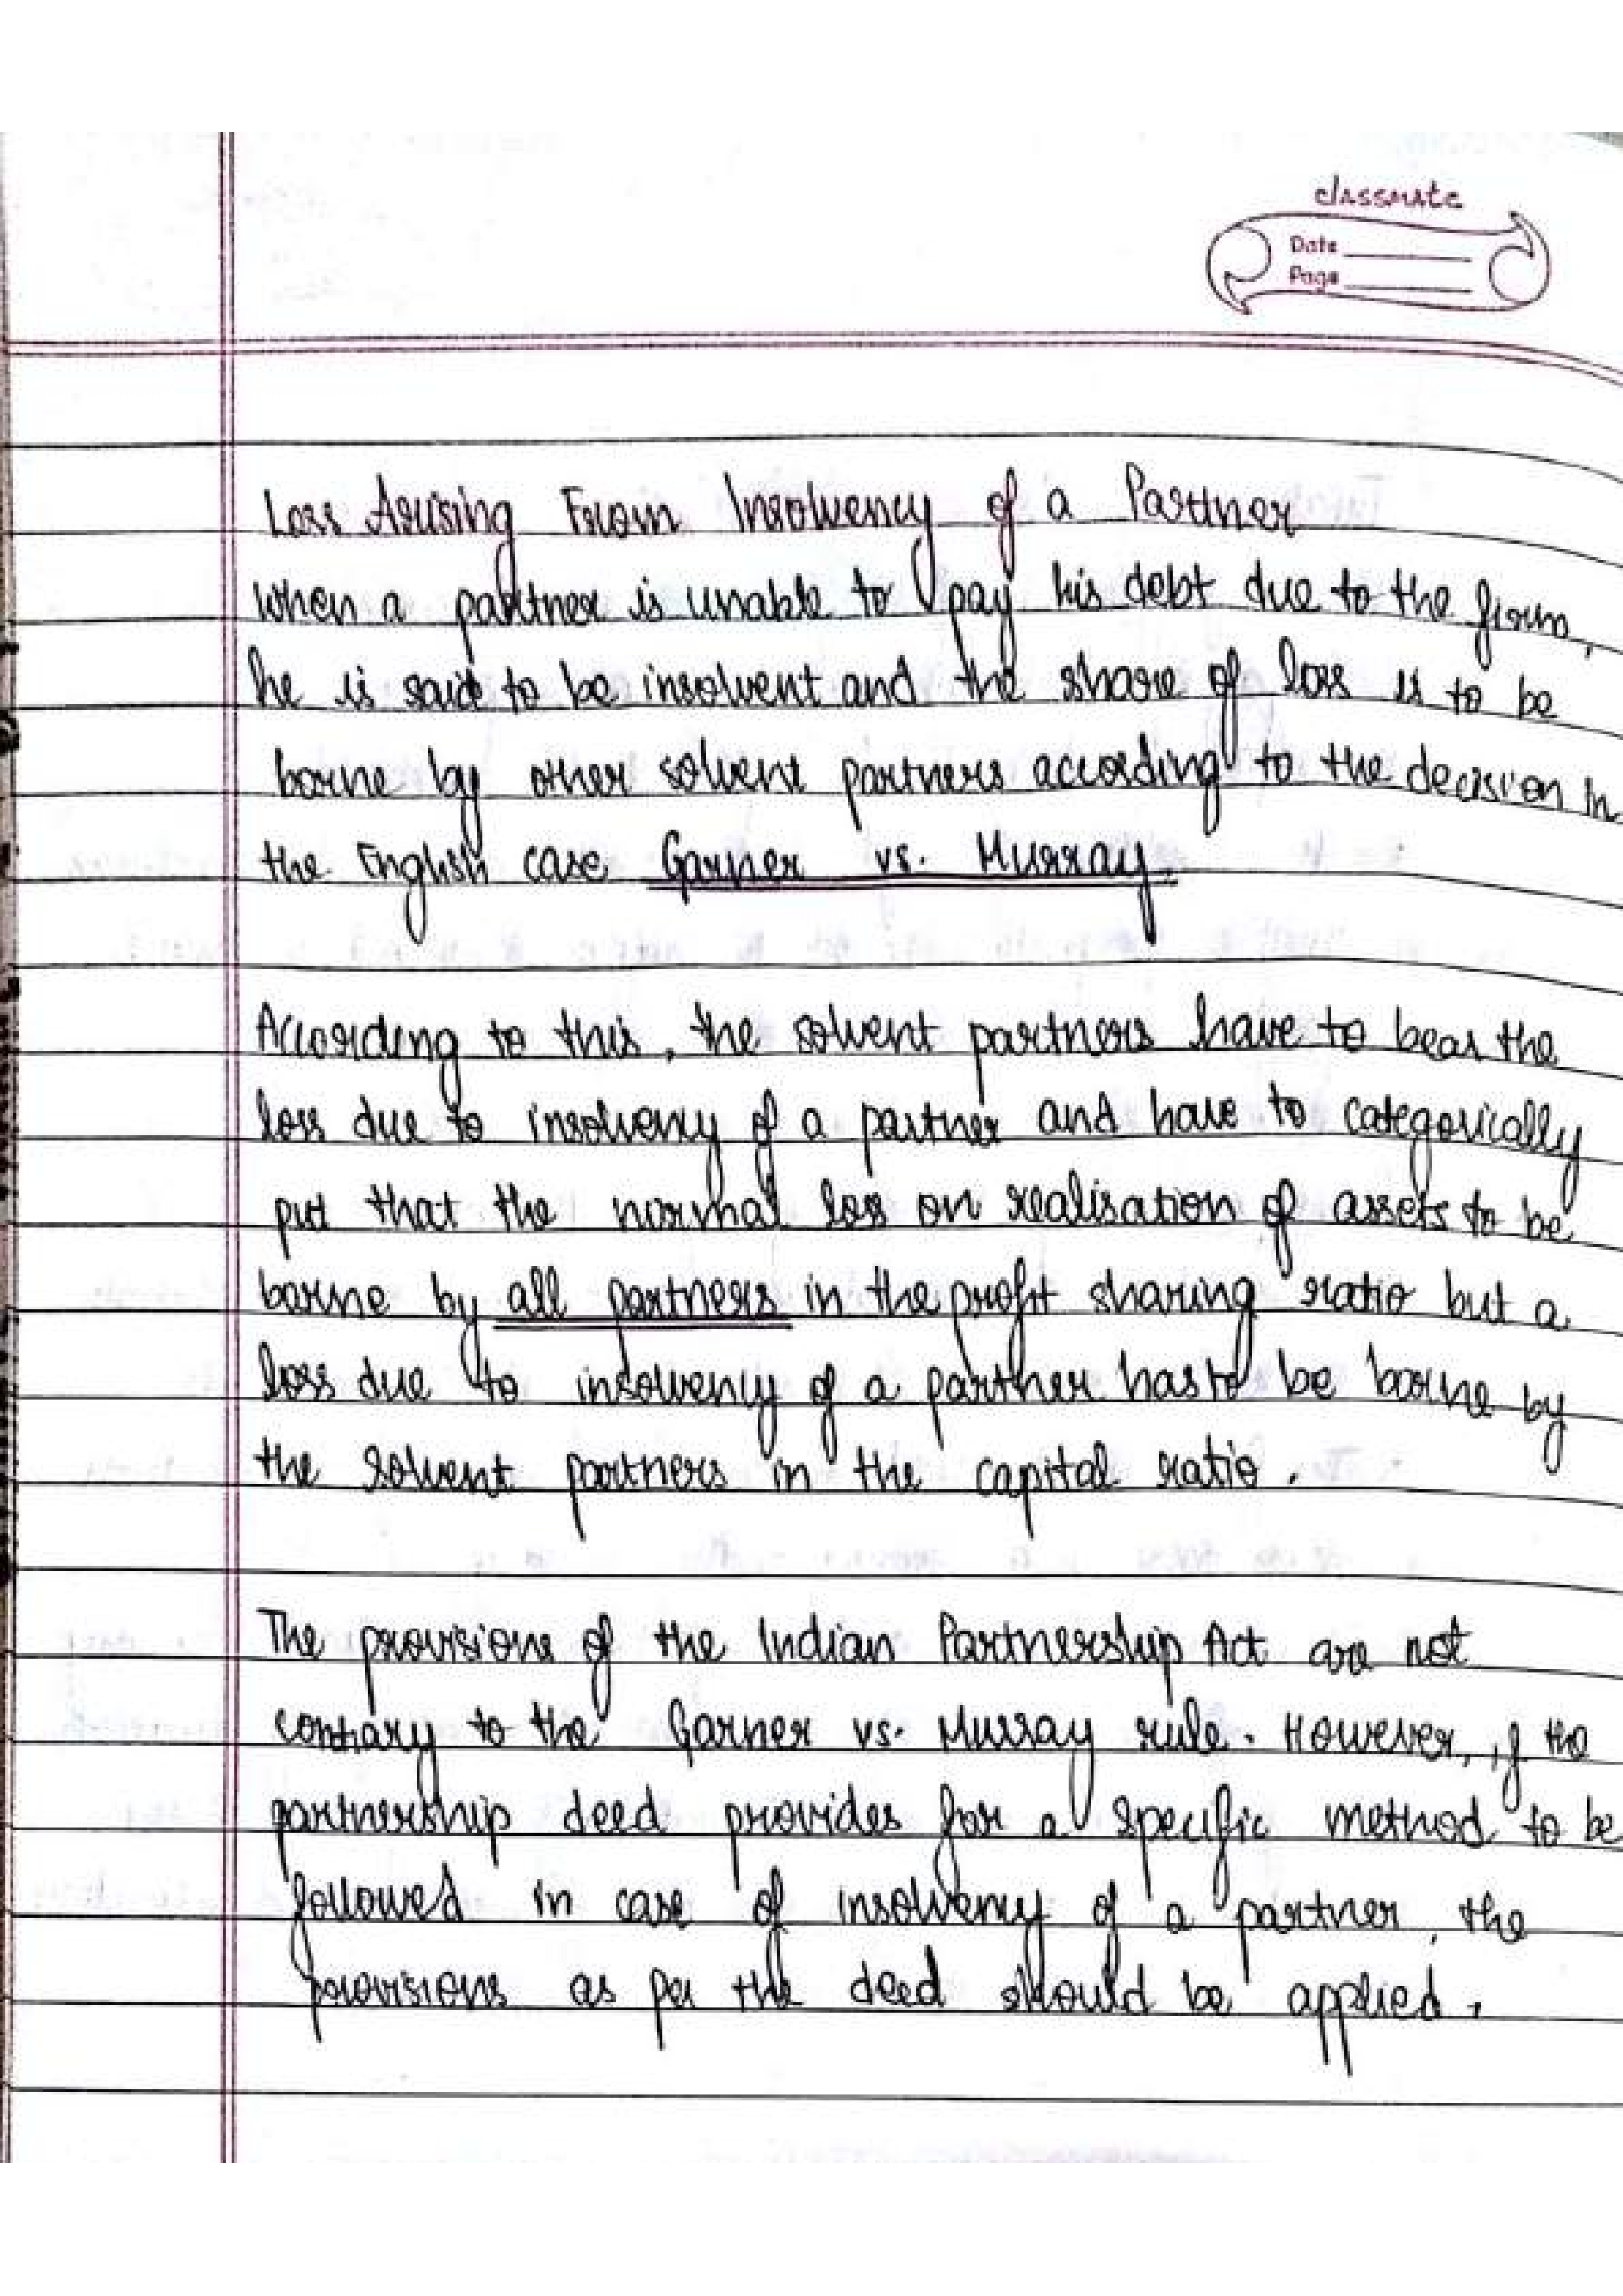 classmate
Date
Page
Loss Arising From Insolvency of a Partner
When a partner is unable to pay his debt due to the firm,
he is said to be insolvent and the share of loss is to be
borne by other solvent partners according to the decision in
the English case Garner vs. Murray.
According to this, the solvent partners have to bear the
loss due to insolvency of a partner and have to categorically
put that the normal loss on realisation of assets to be
borne by all partners in the profit sharing ratio but a
loss due to insolvency of a partner has to be borne by
the solvent partners in the capital ratio.
The provisions of the Indian Partnership Act are not
contrary to the Garner vs. Murray rule. However, if the
partnership deed provides for a specific method to be
followed in case of insolvency of a partner, the
provisions as per the deed should be applied.